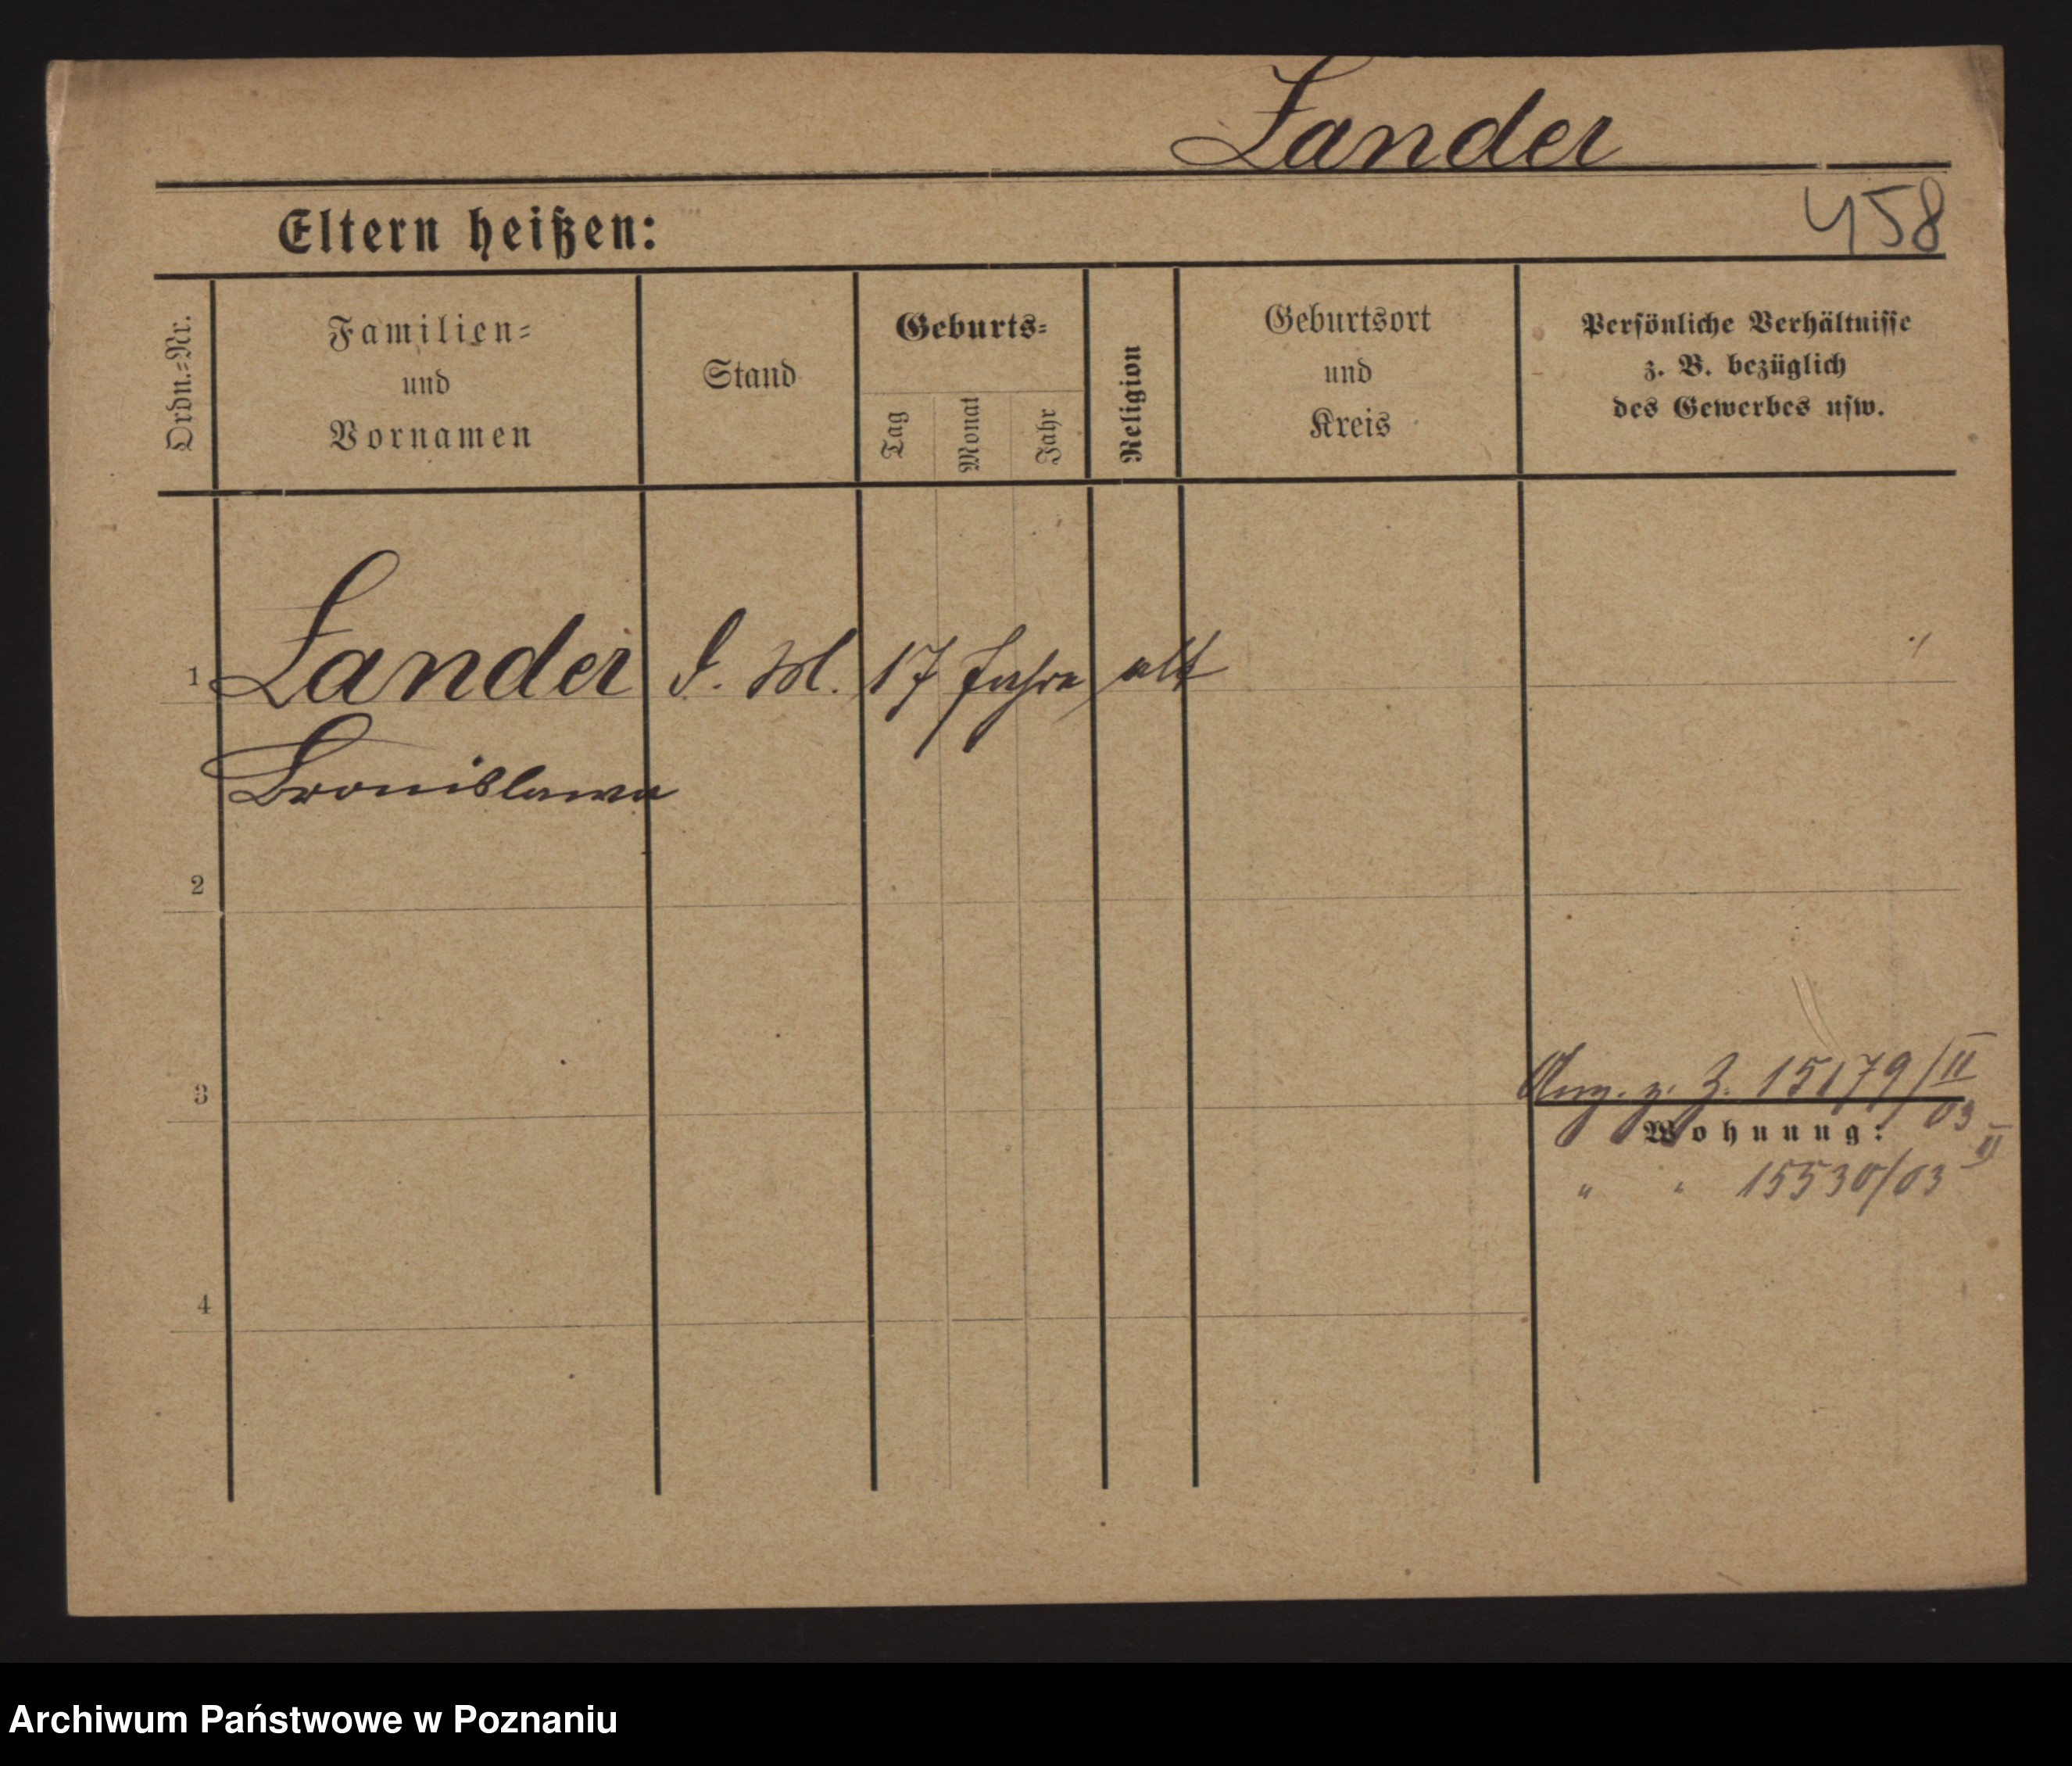 Zander
Eltern heißen:
458
Ordn.=Nr.
Familien=
und
Vornamen
Stand
Geburts=
Tag
Monat
Jahr
Religion
Geburtsort
und
Kreis
Persönliche Verhältnisse
z. B. bezüglich
des Gewerbes usw.
1 Zander D. M. 17 Jahre alt
Bronislawa
2
3
Anz. z. Z. 15179/II
03
Wohnung:
" " 15530/03 II
4
Archiwum Państwowe w Poznaniu